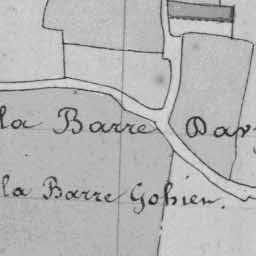 la Barre Dav
la Barre Gohier.